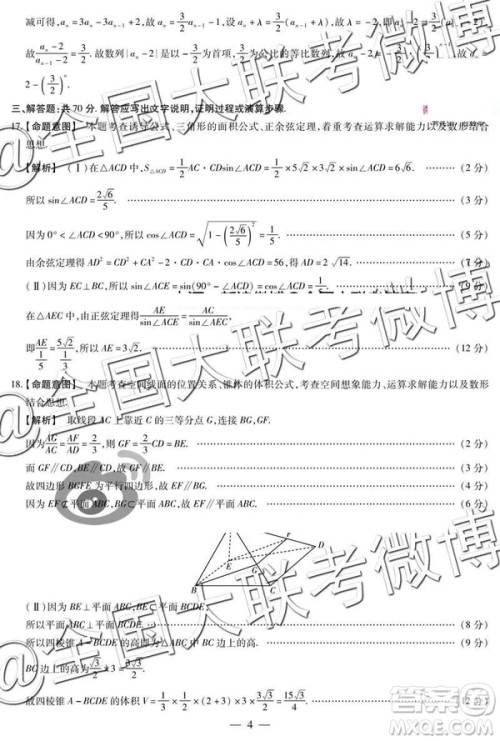 减可得,aₙ-2=3aₙ₋₁-2aₙ,故aₙ=3/2aₙ₋₁-1,设aₙ+λ=3/2(aₙ₋₁+λ),故λ=-2,即aₙ-2=3/2(aₙ₋₁-2),
故(aₙ-2)/(aₙ₋₁-2)=3/2.故数列{aₙ-2}是以-2为首项,3/2为公比的等比数列,故aₙ-2=
2-(3/2)ⁿ.
三、解答题:共70分.解答应写出文字说明,证明过程或演算步骤.
17.【命题意图】本题考查诱导公式,三角形的面积公式、正余弦定理,着重考查运算求解能力以及数形结合
思想.
【解析】(Ⅰ)在△ACD中,S△ACD=1/2AC·CDsin∠ACD=1/2×5√2×3√2×sin∠ACD=6√6. (2分)
所以sin∠ACD=2√6/5. (3分)
因为0°<∠ACD<90°,所以cos∠ACD=√(1-(2√6/5)²)=1/5. (4分)
由余弦定理得AD²=CD²+CA²-2·CD·CAcos∠ACD=56,得AD=2√14. (7分)
(Ⅱ)因为EC⊥BC,所以 (9分)
在△AEC中,由正弦定理得AE/sin∠ACE=AC/sin∠AEC,
即AE/(1/5)=5√2/(1/2),所以AE=2√2. (12分)
18.【命题意图】本题考查空间线面的位置关系、锥体的体积公式,考查空间想象能力,运算求解能力以及数形
结合思想.
【解析】取线段AC上靠近C的三等分点G,连接BG,GF.
因为AG/AC=AF/AD=2/3,则GF=2/3CD=BE. (2分)
而GF∥CD,BE∥CD,故GF∥BE. (4分)
故四边形BGFE为平行四边形,故EF∥BG. (5分)
因为EF⊄平面ABC,BG⊂平面ABC,故EF∥平面ABC. (6分)
E
D
G
B
C
(Ⅱ)因为BE⊥平面ABC,BE⊂平面BCDE,
所以平面ABC⊥平面BCDE. (8分)
所以四棱锥A-BCDE的高即为△ABC中BC边上的高. (9分)
BC边上的高为√3/2×3=3√3/2.
故四棱锥A-BCDE的体积V=1/3×1/2×(2+3)×3×3√3/2=15√3/4. (12分)
— 4 —
@全国大联考微博
@全国大联考微博